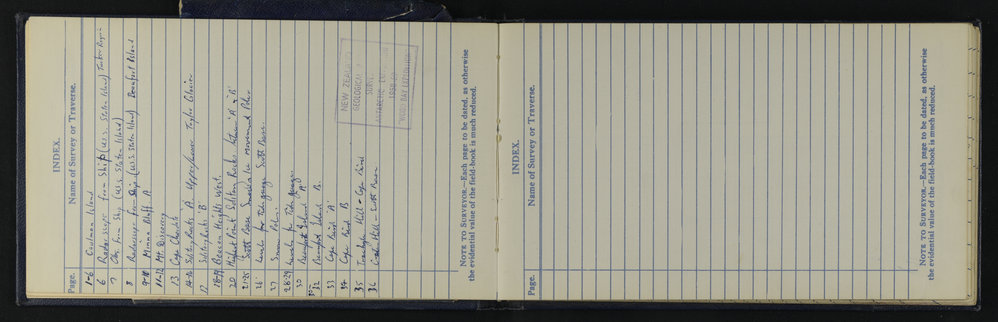 INDEX.
Page. Name of Survey or Traverse.
1-6 Coulman Island
6 Radar from Ship (U.S.S. Staten Island)
7 Obs. from Ship (U.S.S. Staten Island)
8 from Ship (U.S.S. Staten Island) Beaufort Island
9-11 Minna Bluff A
11-12 Mt Discovery
13 Cape Chocolate
14-16 Solitary Rocks A. Upper/Lower Taylor Glacier
17 Solitary Rocks 'B'
18-19 Beacon Heights West.
20 Highest Point Solitary Rocks between 'A' & 'B'
21-25 Scott Base Ice Movement Poles
26 Levels for Tide gauge Scott Base.
27 Snow Poles.
28-29 Levels for Tide gauge.
30 Beaufort Island A
32 Beaufort Island B.
33 Cape Bird 'A'
34 Cape Bird B
35 Hill - Cape Bird
36 Hill - Scott Base
NEW ZEALAND
GEOLOGICAL
SURVEY
ANTARCTIC EXPEDITION
1958-59
NOTE TO SURVEYOR.—Each page to be dated, as otherwise
the evidential value of the field-book is much reduced.
INDEX.
Page. Name of Survey or Traverse.
NOTE TO SURVEYOR.—Each page to be dated, as otherwise
the evidential value of the field-book is much reduced.